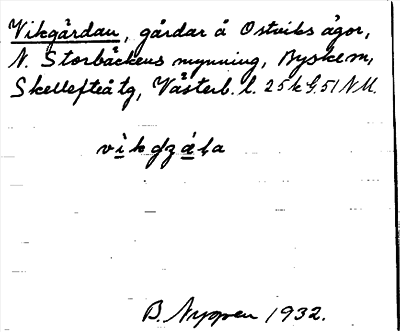 Vikgårdan, gårdar å Ostviks ågor,
N. Storbäckens mynning, Byske sn,
Skellefteå tg, Västerb. l. 25 k G. 51 N U.
B. Nygren 1932.